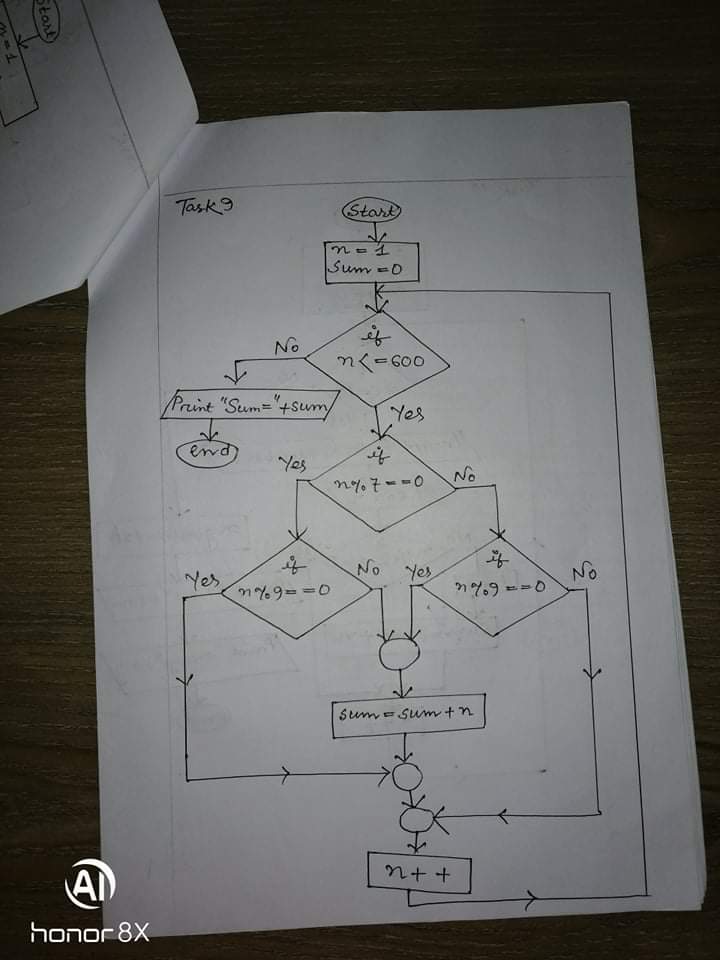 Start
n = 1
Task 9
Start
n = 1
Sum = 0
if
n <= 600
No
Yes
Print "Sum="+sum
end
if
n%7==0
Yes
No
if
n%9==0
Yes
No
if
n%9==0
Yes
No
sum = sum + n
n++
AI
honor 8X